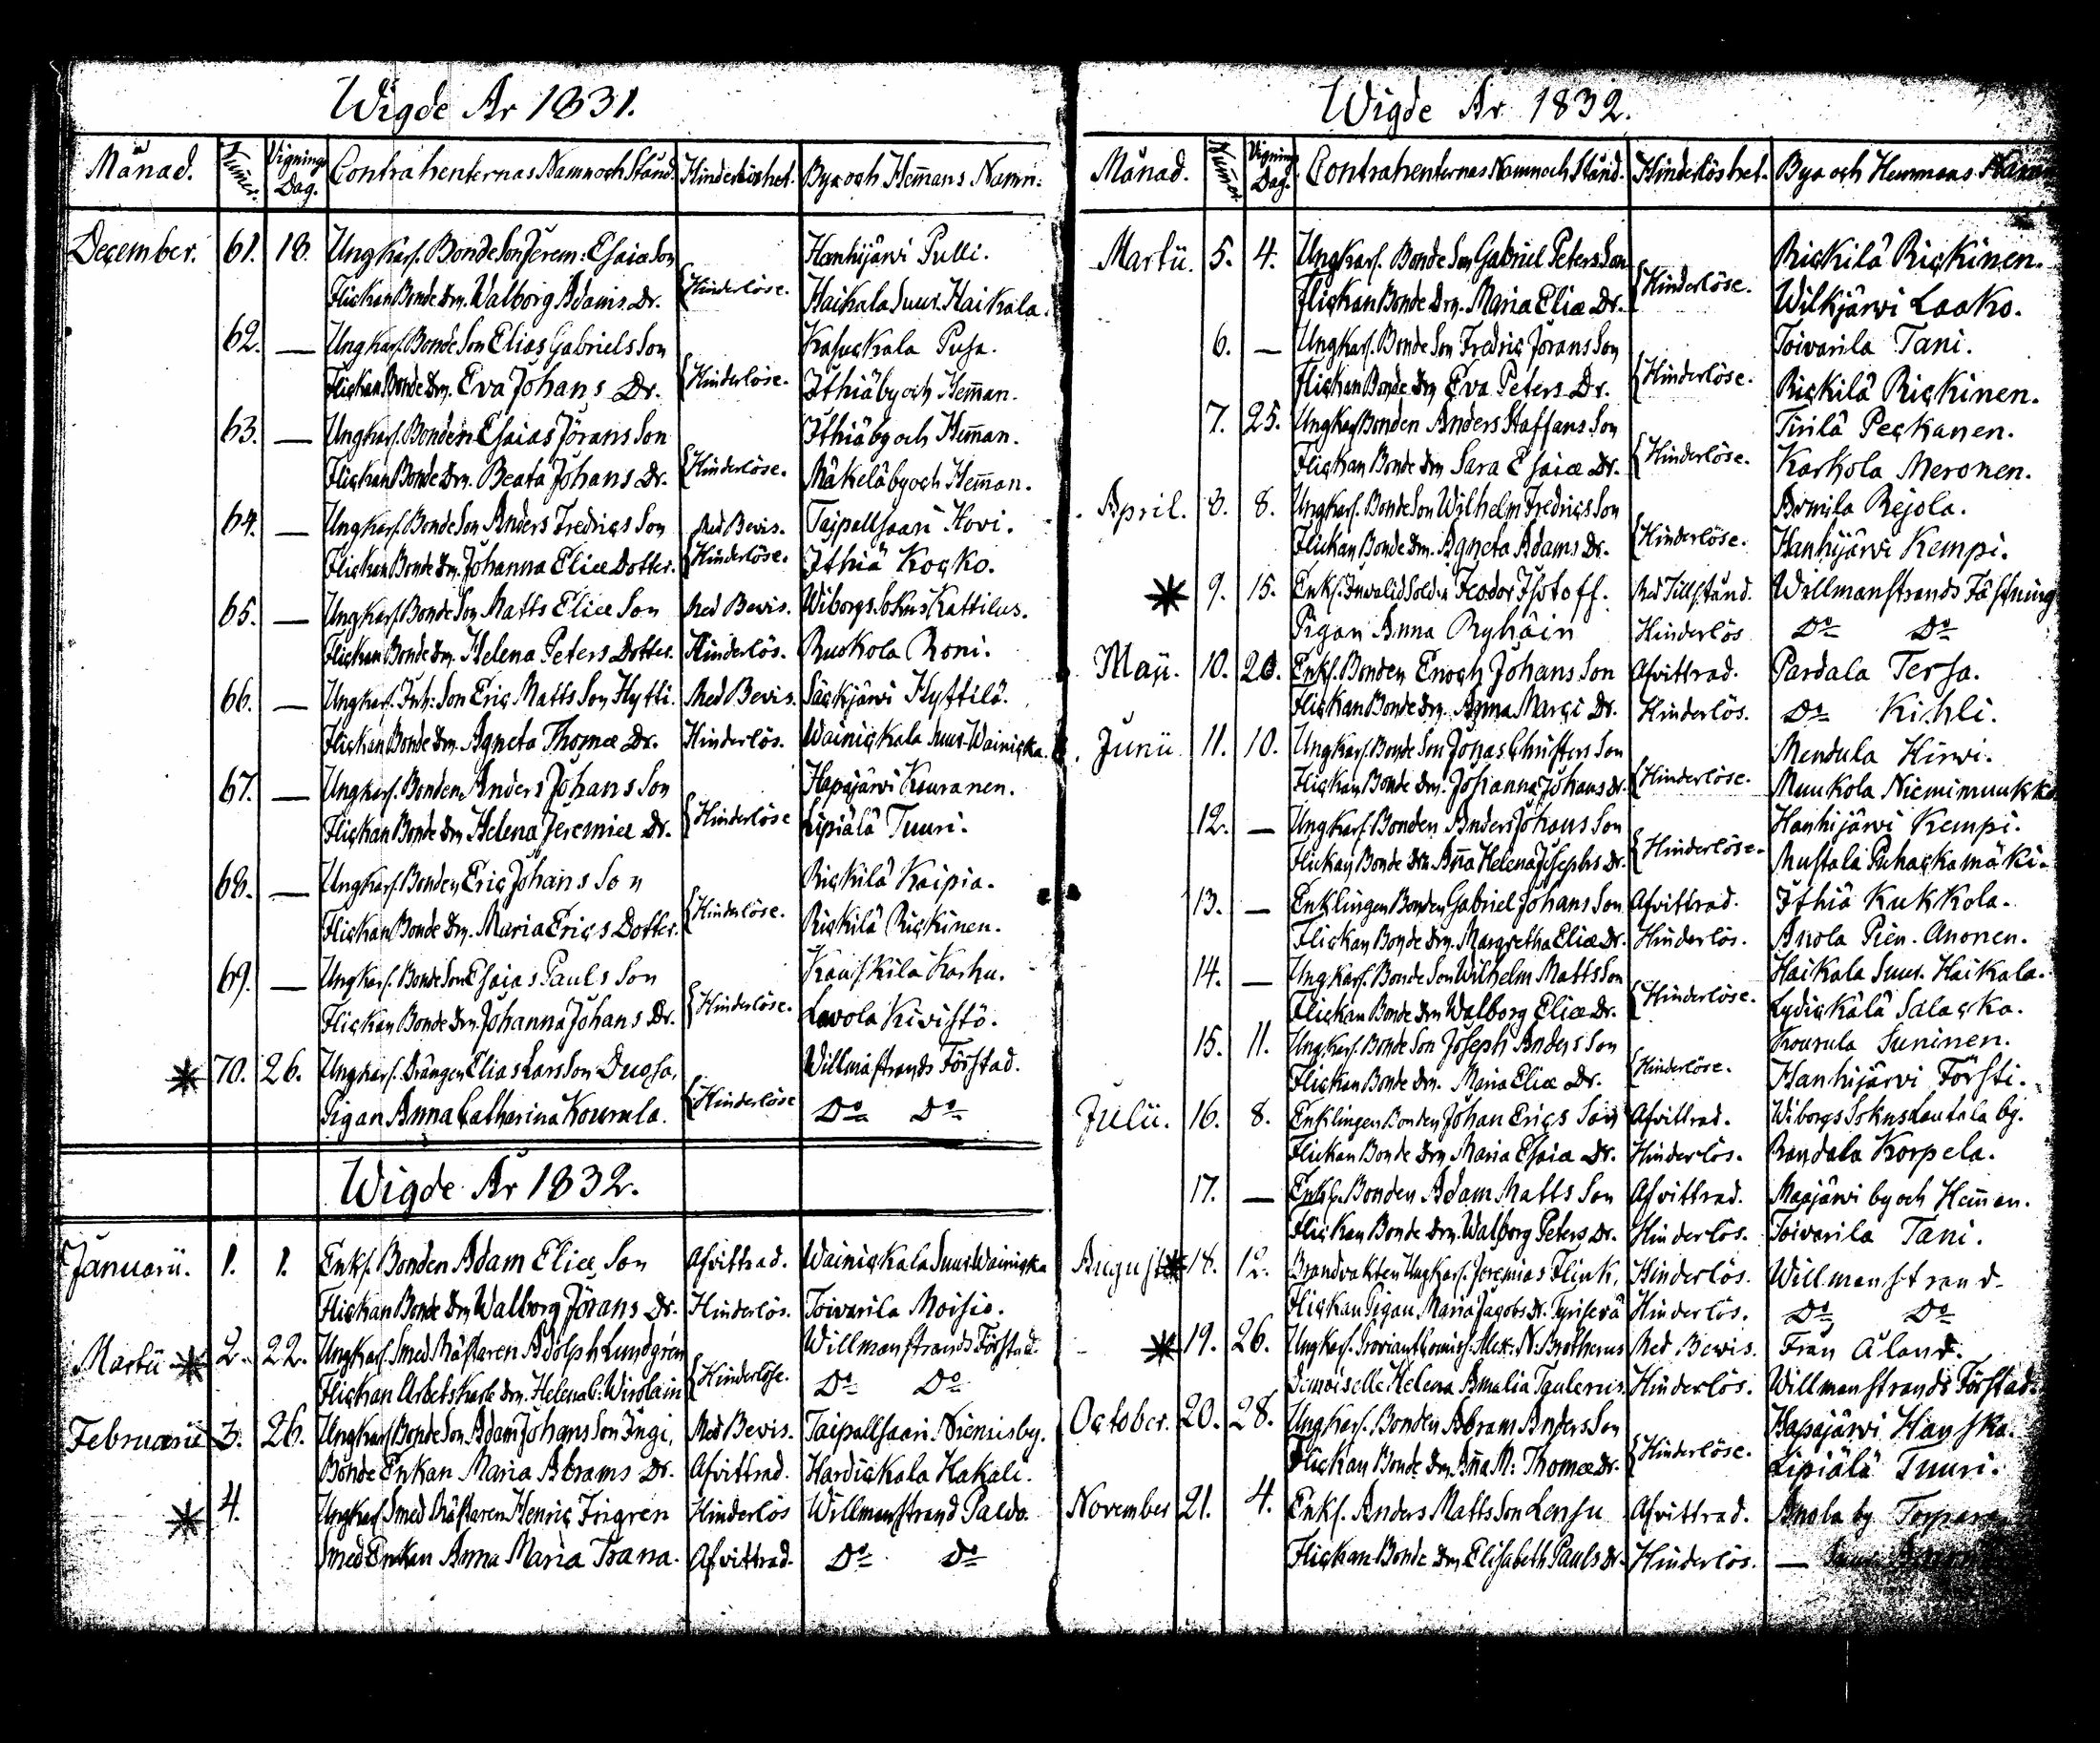 Wigde År 1831.
Månad. Numer. Vignings Dag. Contrahenternas Namn och Stånd. Hinderlöshet. Bya och Hemans Namn.
December. 61. 18. Ungkarl. Bonde Son Jerem: Esaiæ Son Hanhijärvi Pulli.
Flickan Bonde Drn. Walborg Adams Dr. Hinderlöse. Haikala Suur Haikala.
62. — Ungkarl. Bonde Son Elias Gabriels Son Kasuckala Pusa.
Flickan Bonde Drn. Eva Johans Dr. Hinderlöse. Ithiä by och Heman.
63. — Ungkarl. Bonden Esaias Jörans Son Ithiä by och Heman.
Flickan Bonde Drn. Beata Johans Dr. Hinderlöse. Mäkelä by och Heman.
64. — Ungkarl. Bonde Son Anders Fredrics Son Med Bevis. Taipallsaari Hovi.
Flickan Bonde Drn. Johanna Eliæ Dotter. Hinderlöse. Ithiä Kocko.
65. — Ungkarl. Bonde Son Matts Eliæ Son Med Bevis. Wiborgs Sokns Kattilus.
Flickan Bonde Drn. Helena Peters Dotter. Hinderlös. Ruokola Roni.
66. — Ungkarl. Inh: Son Eric Matts Son Hytti. Med Bevis. Säckjärvi Hyttilä.
Flickan Bonde Drn. Agneta Thomæ Dr. Hinderlös. Wainickala Suur Wainicka.
67. — Ungkarl. Bonden Anders Johans Son Hapajärvi Kouranen.
Flickan Bonde Drn Helena Jeremiæ Dr. Hinderlöse Lipiälä Tuuri.
68. — Ungkarl. Bonden Eric Johans Son Rickilä Kaipia.
Flickan Bonde Drn. Maria Erics Dotter. Hinderlöse. Rickilä Rickinen.
69. — Ungkarl. Bonde Son Esaias Pauls Son Kauskila Karhu.
Flickan Bonde Drn. Johanna Johans Dr. Hinderlöse. Lavola Kivistö.
70. 26. Ungkarl. Drängen Elias Lars Son Duosa, Willmanstrands Förstad.
Pigan Anna Catharina Kourula. Hinderlöse Do Do
Wigde År 1832.
Januarii. 1. 1. Enkl. Bonden Adam Eliæ Son Afvittrad. Wainickala Suur Wainicka
Flickan Bonde Drn Walborg Jörans Dr. Hinderlös. Toivarila Moisio.
Martii 2. 22. Ungkarl. Smed Mästaren Adolph Lundgrén Willmanstrands Förstad.
Flickan Arbetskarls Drn. Helena C: Wirolain Hinderlöse. Do Do
Februarii 3. 26. Ungkarl Bonde Son Adam Johans Son Ingi, Med Bevis. Taipallsaari Niemis by.
Bonde Enkan Maria Abrams Dr. Afvittrad. Hardickala Hakali.
4. Ungkarl Smed Mästaren Henric Frigren Hinderlös Willmanstrand Paldo.
Smed Enkan Anna Maria Trana. Afvittrad. Do Do
Wigde År 1832.
Månad. Numer Vignings Dag. Contrahenternas Namn och Stånd. Hinderlöshet. Bya och Hemmans Namn
Martii. 5. 4. Ungkarl. Bonde Son Gabriel Peters Son Rickilä Rickinen.
Flickan Bonde Drn. Maria Eliæ Dr. Hinderlöse. Wilkjärvi Laako.
6. — Ungkarl. Bonde Son Fredric Jörans Son Toivarila Tani.
Flickan Bonde Drn Eva Peters Dr. Hinderlöse. Rickilä Rickinen.
7. 25. Ungkarl Bonden Anders Staffans Son Tirilä Peckanen.
Flickan Bonde Drn Sara Esaiæ Dr. Hinderlöse. Karkola Meronen.
April. 8. 8. Ungkarl. Bonde Son Wilhelm Fredrics Son Armila Rejola.
Flickan Bonde Drn. Agneta Adams Dr. Hinderlöse. Hanhijärvi Kempi.
9. 15. Enkl. Invalid Sold:n Feodor Istoff. Med Tillstånd. Willmanstrands Fästning
Pigan Anna Ryhäin Hinderlös Do Do
Maji. 10. 20. Enkl. Bonden Enoch Johans Son Afvittrad. Pardala Tersa.
Flickan Bonde Drn. Anna Marci Dr. Hinderlös. Do Kihli.
Junii 11. 10. Ungkarl. Bonde Son Jonas Christers Son Mendula Hirvi.
Flickan Bonde Drn. Johanna Johans Dr. Hinderlöse. Muukola Niemimuukko
12. — Ungkarl. Bonden Anders Johans Son Hanhijärvi Kempi.
Flickan Bonde Drn. Ana Helena Josephs Dr. Hinderlöse. Mustala Puhackamäki.
13. — Enklingen Bonden Gabriel Johans Son Afvittrad. Ithiä Kukkola.
Flickan Bonde Drn. Margretha Eliæ Dr. Hinderlös. Anola Pien. Anonen.
14. — Ungkarl. Bonde Son Wilhelm Matts Son Haikala Suur. Haikala.
Flickan Bonde Drn Walborg Eliæ Dr. Hinderlöse. Lydickälä Salacka.
15. 11. Ungkarl. Bonde Son Joseph Anders Son Kourula Suninen.
Flickan Bonde Drn. Maria Eliæ Dr. Hinderlöse. Hanhijärvi Försti.
Julii. 16. 8. Enklingen Bonden Johan Erics Son Afvittrad. Wiborgs Sokns Lautala by.
Flickan Bonde Drn Maria Esaiæ Dr. Hinderlös. Randala Korpela.
17. — Enkl. Bonden Adam Matts Son Afvittrad. Maajärvi by och Heman.
Flickan Bonde Drn. Walborg Peters Dr. Hinderlös. Toivarila Tani.
Augusti 18. 12. Brandvakten Ungkarl. Jeremias Flink, Hinderlös. Willmanstrand
Flickan Pigan Maria Jacobs Dr. Tyrisevä Hinderlös. Do Do
19. 26. Ungkarl. Alex: N. Brotherus Med Bewis. Från Åland.
Demoiselle Helena Amalia Taulerus. Hinderlös. Willmanstrands Förstad.
October. 20. 28. Ungkarl. Bonden Abram Anders Son Hapajärvi Hanska.
Flickan Bonde Drn Ana M: Thomæ Dr. Hinderlöse. Lipiälä Tuuri.
November 21. 4. Enkl. Anders Matts Son Lensu Afvittrad. Anola by
Flickan Bonde Drn Elisabeth Pauls Dr. Hinderlös. —